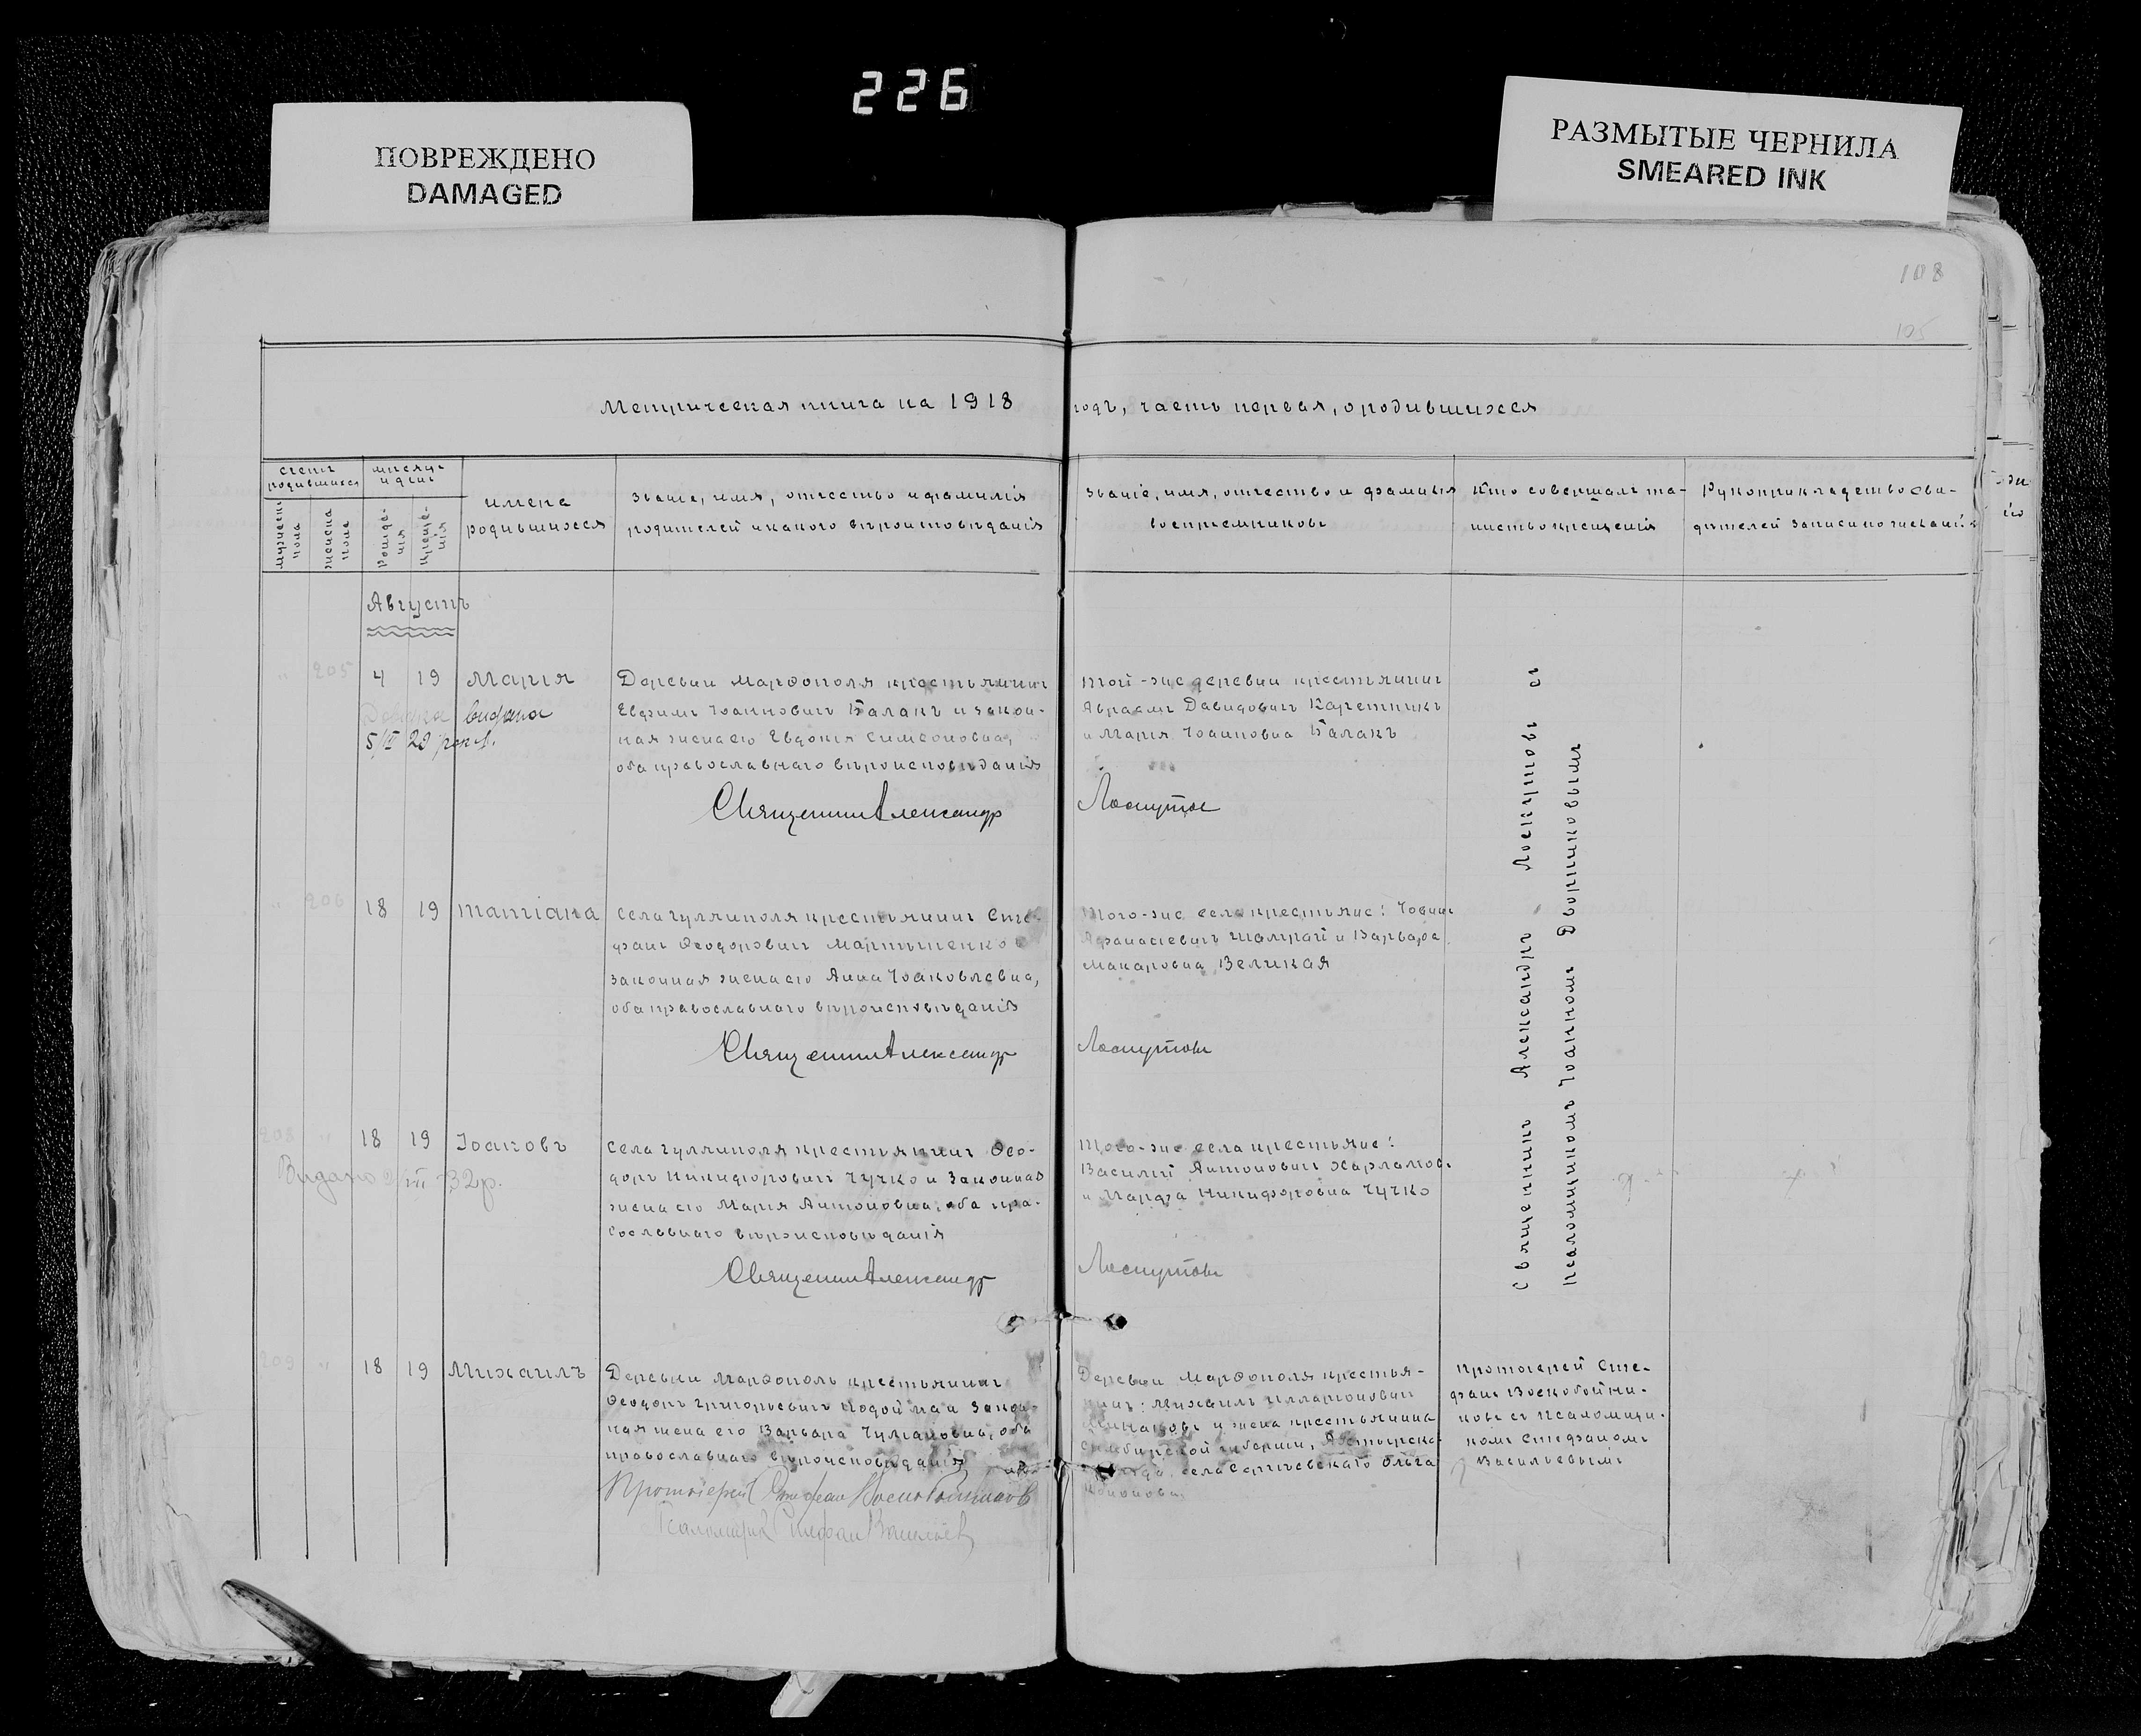 226
ПОВРЕЖДЕНО
DAMAGED
РАЗМЫТЫЕ ЧЕРНИЛА
SMEARED INK
108
105
Метрическая книга на 1918
годъ, часть первая, о родившихся
счетъ родившихся
мѣсяцъ и день
имена родившихся
Званіе, имя, отчество и фамилія
родителей и какого вѣроисповѣданія
Званіе, имя, отчество и фамилія
воспріемниковъ
Кто совершалъ та-
инство крещенія
Рукоприкладство сви-
дѣтелей записи по желанію
мужеска пола
женска пола
Рожде-
нія
Креще-
нія
Августъ
205
4
19
Марія
Деревни Марфополя крестьянинъ
Евфимъ Іоанновичъ Балакъ и закон-
ная жена его Евдокія Симеоновна,
оба православнаго вѣроисповѣданія
видана
Священник Александр
Той-же деревни крестьянинъ
Аврамъ Давидовичъ Каретникъ
и Марія Іоанновна Балакъ
Лоскутов
206
18
19
Татіана
Села Гуляйполя крестьянинъ Сте-
фанъ Феодоровичъ Мартыненко
законная жена его Анна Іоаковлевна,
оба православнаго вѣроисповѣданія
Священник Александр
Того-же села крестьяне:
Афанасіевичъ Шамрай и Варвара
Макаровна Великая
Лоскутовъ
208
18
19
Іоаковъ
Видано
32 р.
Села Гуляйполя крестьянинъ Фео-
доръ Никифоровичъ Чучко и законная
жена его Марія Антоновна, оба пра-
вославнаго вѣроисповѣданія
Священник Александр
Того-же села крестьяне:
Василій Антоновичъ Харламовъ
и Марфа Никифоровна Чучко
Лоскутовъ
Священникъ Александръ Лоскутовъ съ
псаломщикомъ Іоанномъ Дворниковымъ
209
18
19
Михаилъ
Деревни Марфополь крестьянинъ
Феодоръ Григорьевичъ Кодойма и закон-
ная жена его Варвара оба
православнаго вѣроисповѣданія
Протоіерей Стефан Воскобойников
Псаломщик Стефан Васильев
Деревни Марфополя крестья-
нинъ: Михаилъ Илларионовичъ
и жена крестьянина
Симбирской губерніи,
села Сергіевскаго Ольга
Протоіерей Сте-
фанъ Воскобойни-
ковъ съ псаломщи-
комъ Стефаномъ
Васильевымъ